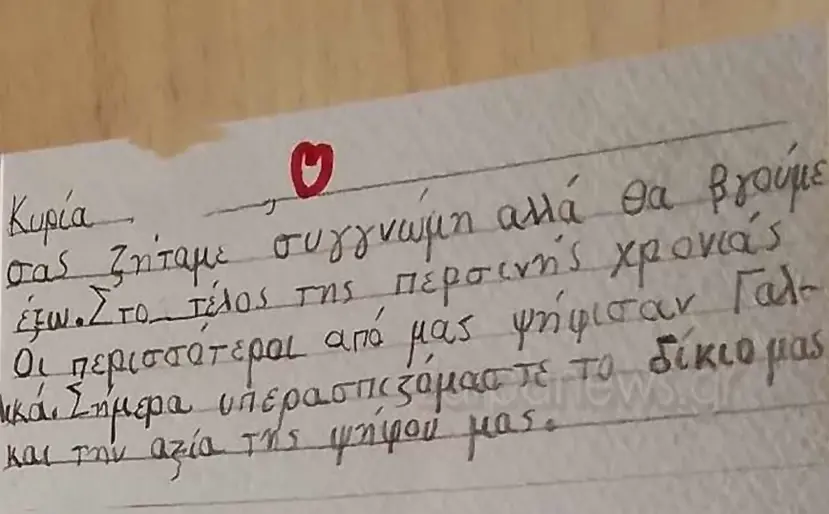 Κυρία ,
σας ζηταμε συγγνώμη αλλά θα βγούμε
έξω. Στο τέλος της περσινής χρονιάς
Οι περισσότεροι από μας ψήφισαν Γαλ-
ικά. Σήμερα υπερασπιζόμαστε το δίκιο μας
και την αξία της ψήφου μας.